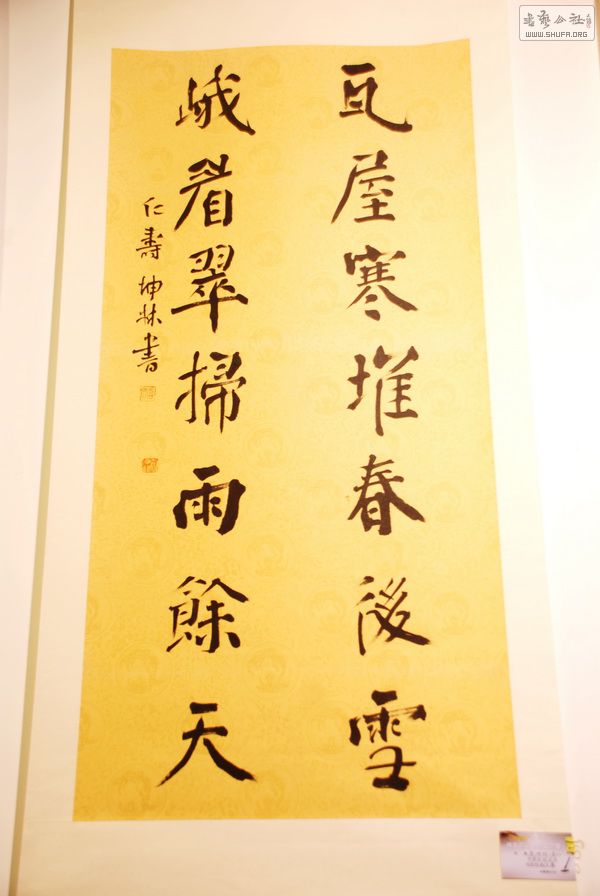 瓦屋寒堆春後雪
峨眉翠掃雨餘天
仁壽坤林書
書藝公社
WWW.SHUFA.ORG